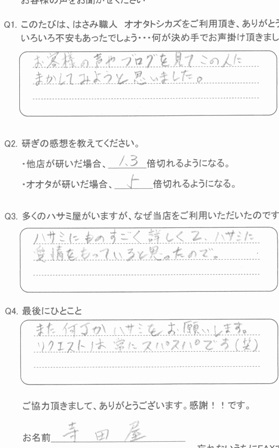 お客様の声をお聞かせください
Q1. このたびは、はさみ職人 オオタトシカズをご利用頂き、ありがとう
いろいろ不安もあったでしょう・・・何が決め手でお声掛け頂きまし
お客様の声やブログを見てこの人に
まかしてみようと思いました。
Q2. 研ぎの感想を教えてください。
・他店が研いだ場合、 1.3 倍切れるようになる。
・オオタが研いだ場合、 5 倍切れるようになる。
Q3. 多くのハサミ屋がいますが、なぜ当店をご利用いただいたのです
ハサミにものすごく詳しくて、ハサミに
愛情をもっていると思ったので。
Q4. 最後にひとこと
また何丁かハサミをお願いします。
リクエストは常にスパスパです(笑)
ご協力頂きまして、ありがとうございます。感謝！！です。
お名前 寺田屋